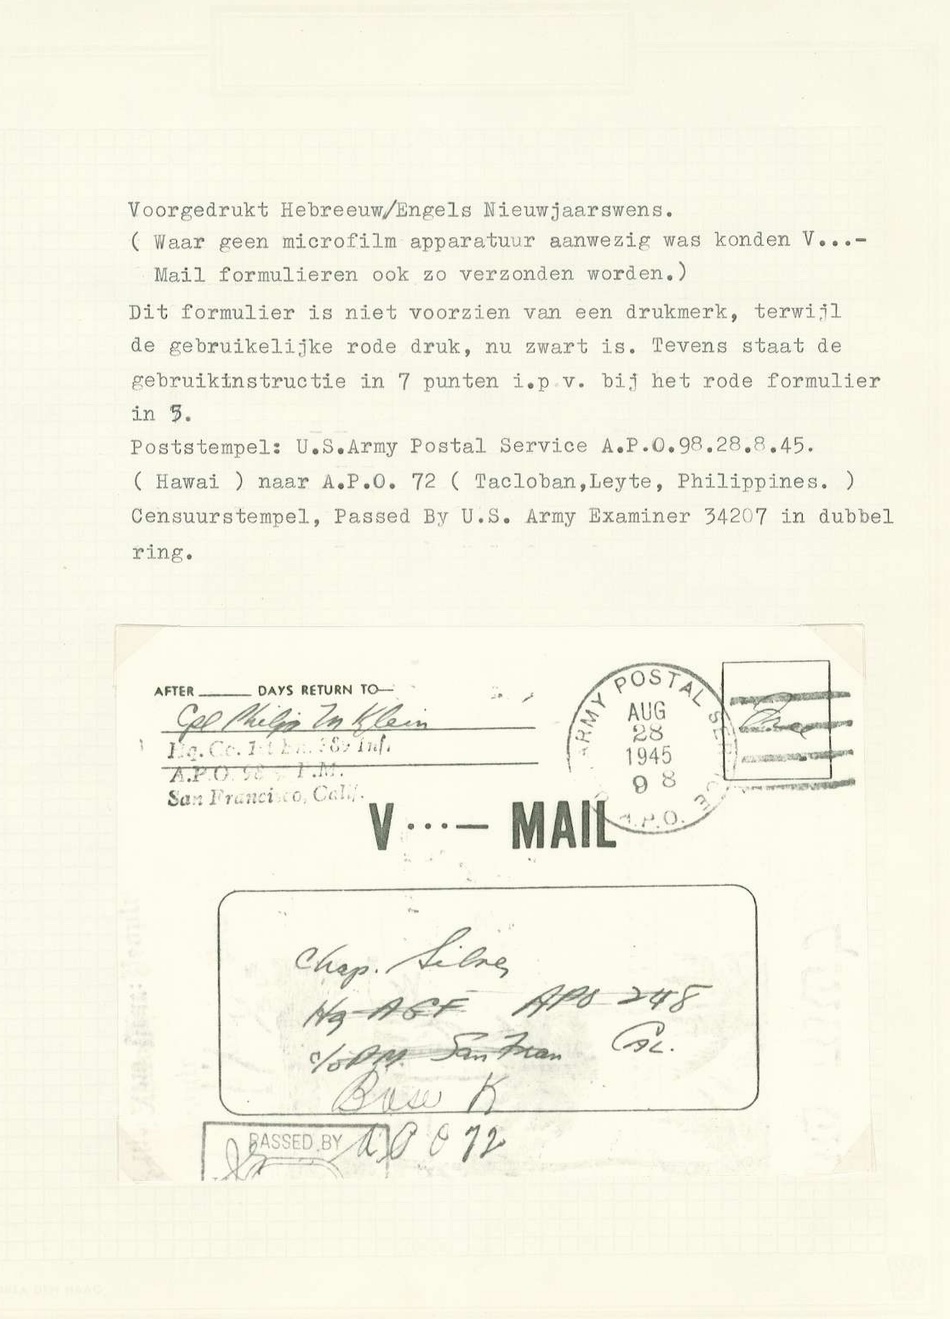 Voorgedrukt Hebreeuw/Engels Nieuwjaarswens.
( Waar geen microfilm apparatuur aanwezig was konden V...-
Mail formulieren ook zo verzonden worden.)
Dit formulier is niet voorzien van een drukmerk, terwijl
de gebruikelijke rode druk, nu zwart is. Tevens staat de
gebruikinstructie in 7 punten i.p.v. bij het rode formulier
in 5.
Poststempel: U.S.Army Postal Service A.P.O.98.28.8.45.
( Hawai ) naar A.P.O. 72 ( Tacloban,Leyte, Philippines. )
Censuurstempel, Passed By U.S. Army Examiner 34207 in dubbel
ring.
AFTER ______ DAYS RETURN TO—
Cpl Philip M Klein
Hq. Co. 1st Bn. 389 Inf.
A.P.O. 98 P.M.
San Francisco, Calif.
ARMY POSTAL SERVICE
AUG
28
1945
98
A.P.O.
Free
V ...— MAIL
Chap. Silver
Hq AGF APO 248
c/o PM. San Fran Cal.
Base K
APO 72
PASSED BY